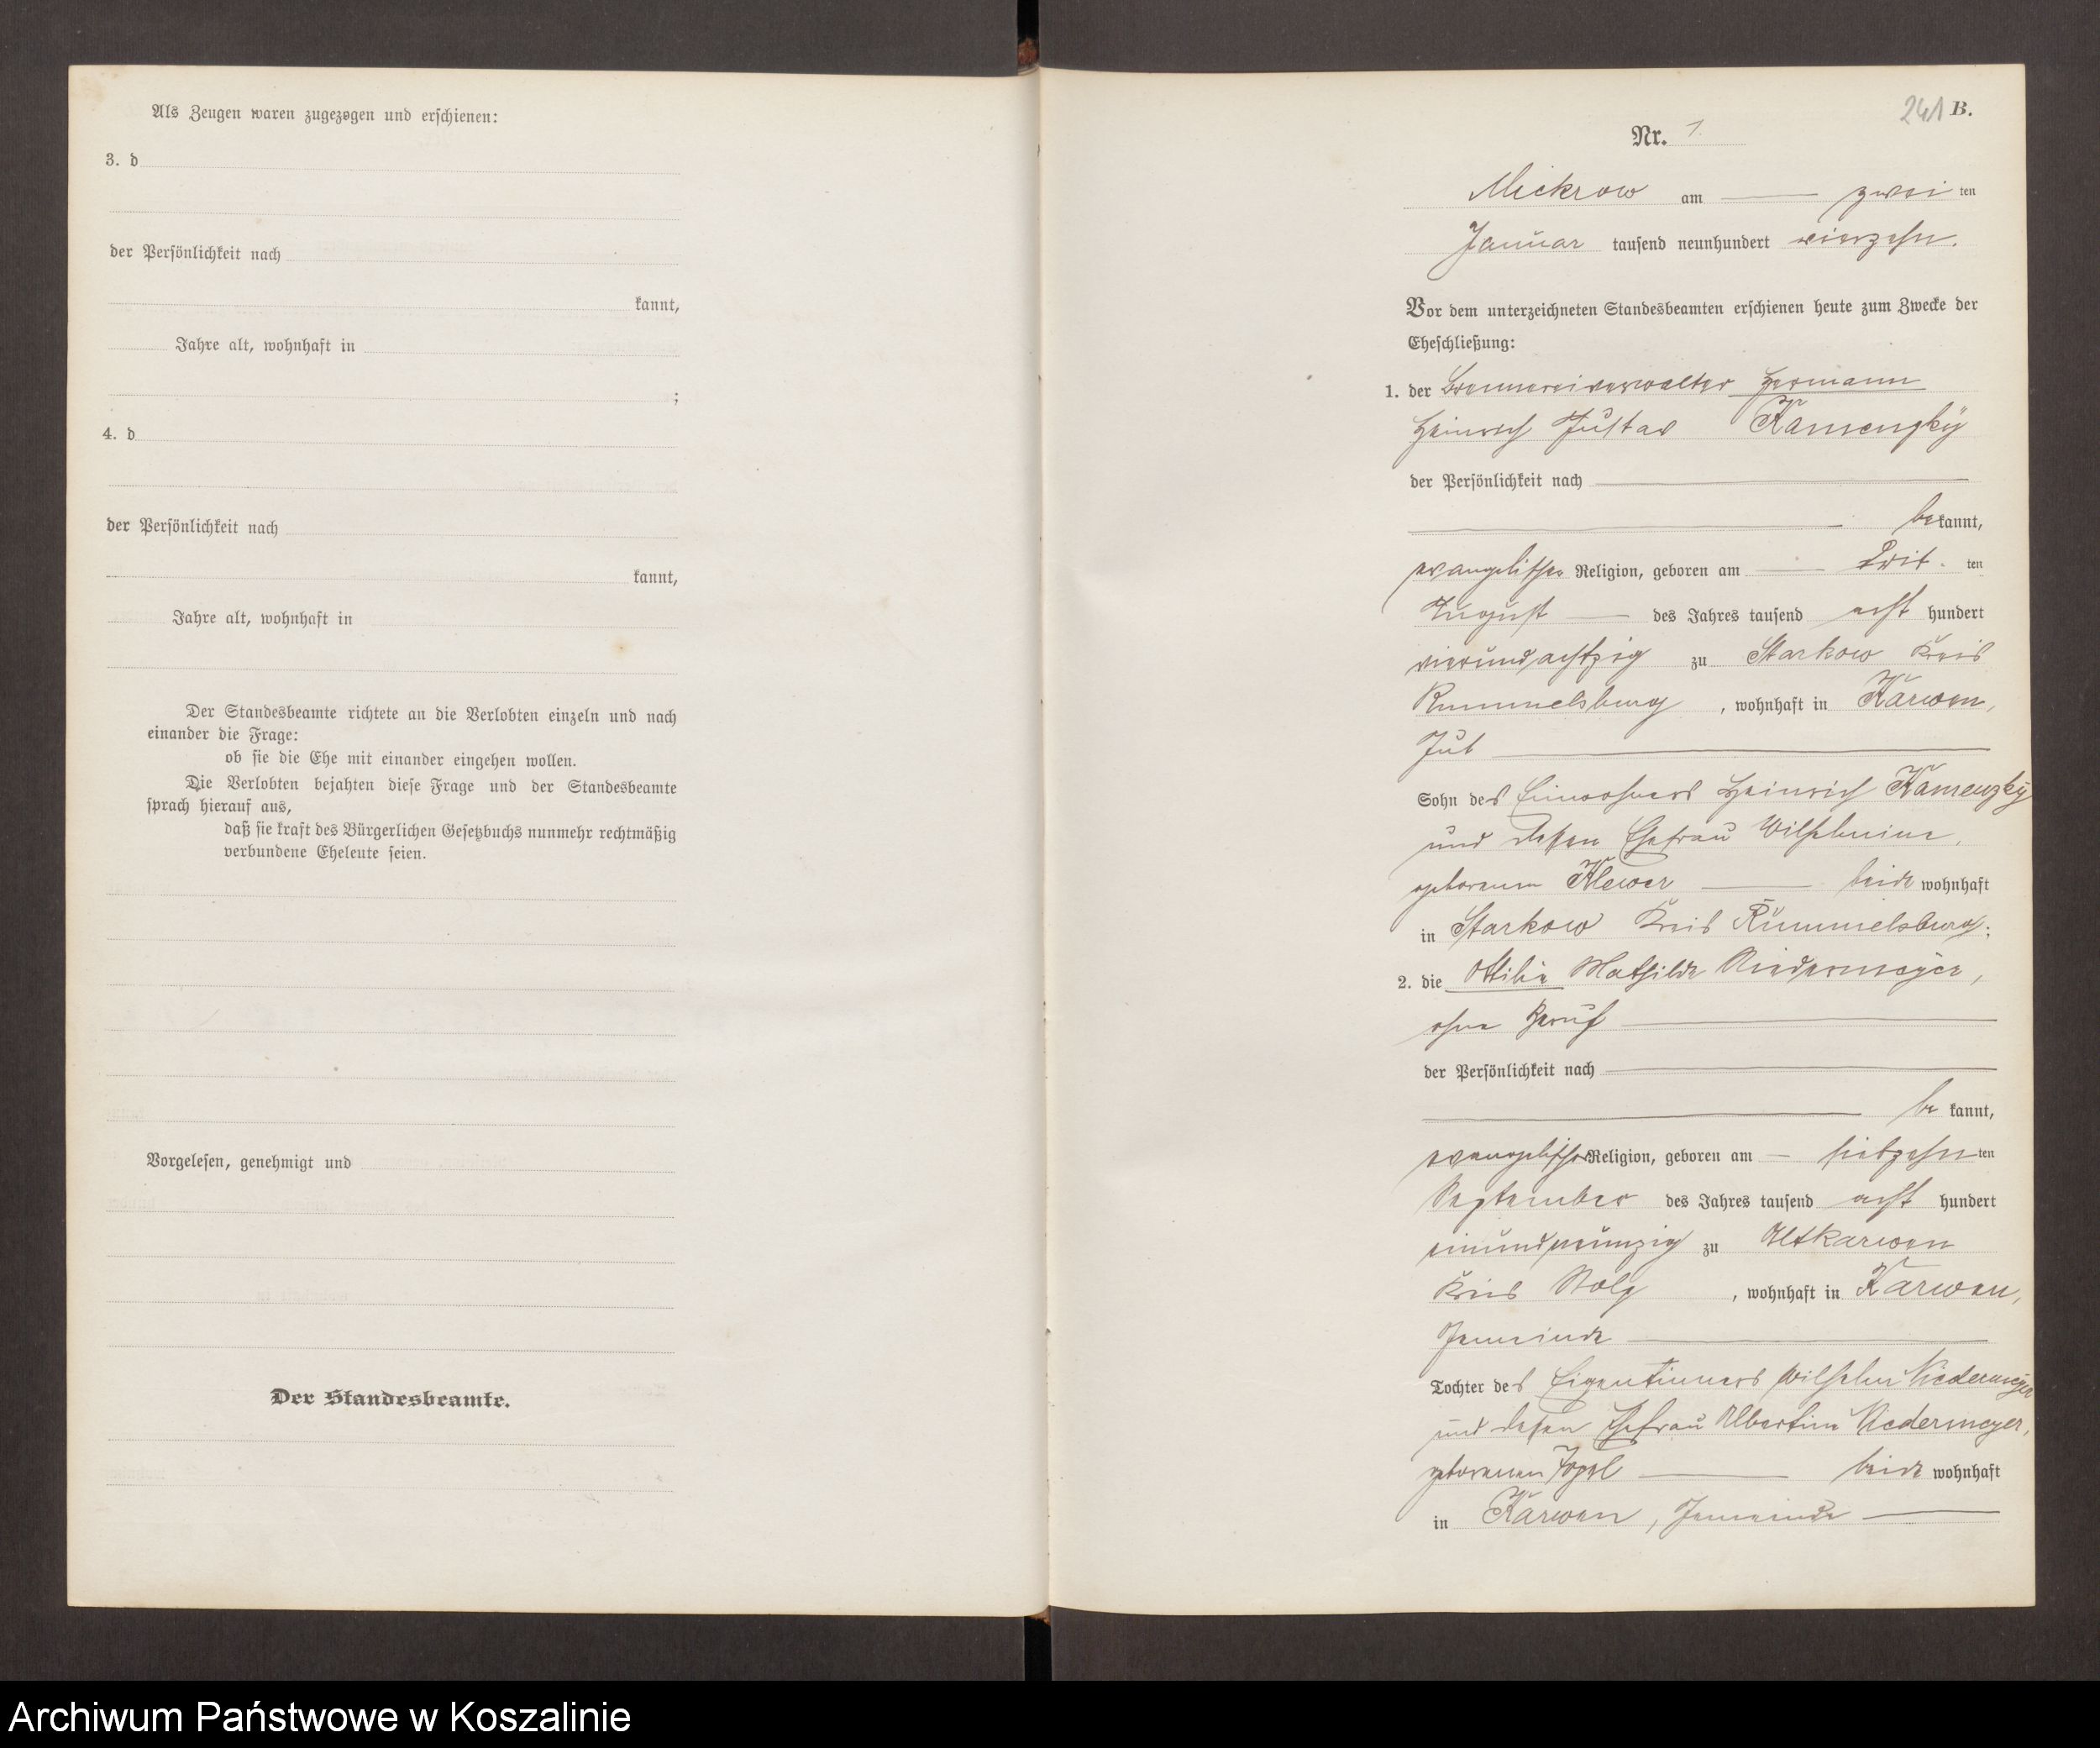 Als Zeugen waren zugezogen und erschienen:
3. d
der Persönlichkeit nach
kannt,
Jahre alt, wohnhaft in
;
4. d
der Persönlichkeit nach
kannt,
Jahre alt, wohnhaft in
Der Standesbeamte richtete an die Verlobten einzeln und nach
einander die Frage:
ob sie die Ehe mit einander eingehen wollen.
Die Verlobten bejahten diese Frage und der Standesbeamte
sprach hierauf aus,
daß sie kraft des Bürgerlichen Gesetzbuchs nunmehr rechtmäßig
verbundene Eheleute seien.
Vorgelesen, genehmigt und
Der Standesbeamte.
241 B.
Nr. 1.
Mickrow am zwei ten
Januar tausend neunhundert vierzehn.
Vor dem unterzeichneten Standesbeamten erschienen heute zum Zwecke der
Eheschließung:
1. der Brennereiverwalter Hermann
Heinrich Gustav Kamenzky
der Persönlichkeit nach
be kannt,
evangelischer Religion, geboren am drit ten
August des Jahres tausend acht hundert
vierundachtzig zu Starkow Kreis
Rummelsburg, wohnhaft in Karwen,
Gut
Sohn des Einwohners Heinrich Kamenzky
und dessen Ehefrau Wilhelmine,
geborenen Klewer beide wohnhaft
in Starkow Kreis Rummelsburg;
2. die Ottilie Mathilde Niedermeyer,
ohne Beruf
der Persönlichkeit nach
be kannt,
evangelischer Religion, geboren am siebzehn ten
September des Jahres tausend acht hundert
einundneunzig zu Altkarwen
Kreis Stolp, wohnhaft in Karwen,
Gemeinde
Tochter des Eigentümers Wilhelm Niedermeyer
und dessen Ehefrau Albertine Niedermeyer,
geborenen beide wohnhaft
in Karwen, Gemeinde
Archiwum Państwowe w Koszalinie